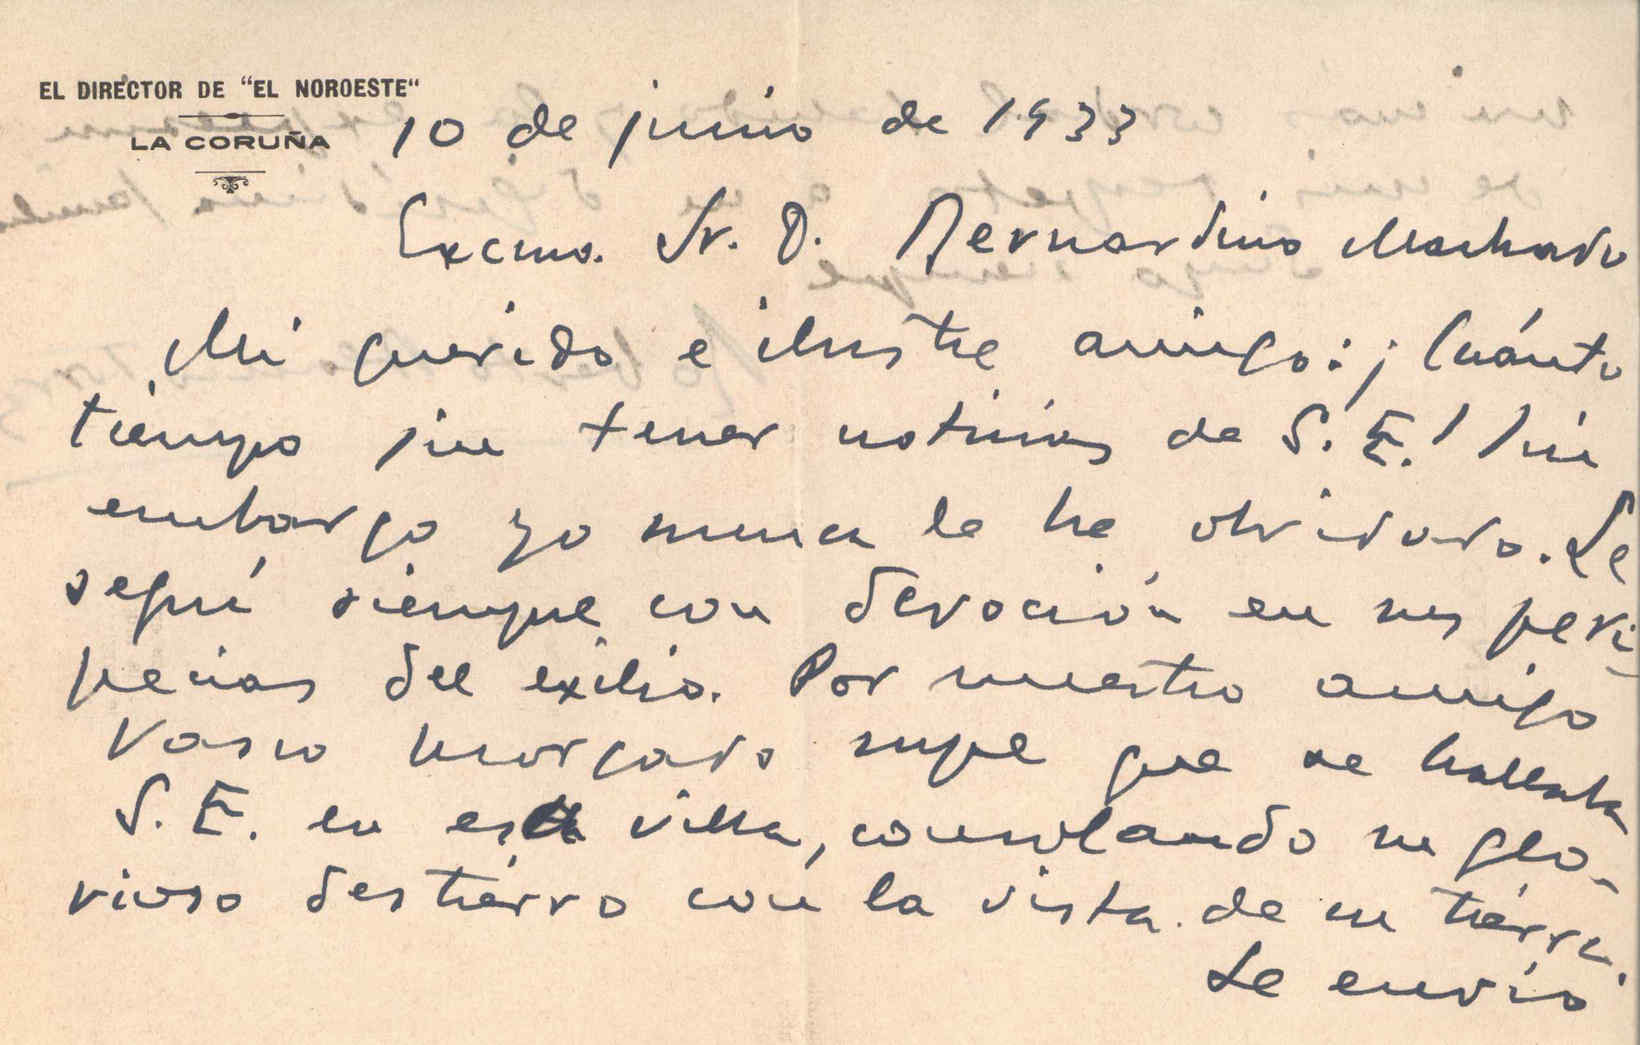 EL DIRECTOR DE "EL NOROESTE"
LA CORUÑA
10 de junio de 1933
Excmo. Sr. D. Bernardino Machado
Mi querido e ilustre amigo: ¡Cuánto
tiempo sin tener noticias de S. E.! Sin
embargo yo nunca le he olvidado. Le
seguí siempre con devoción en sus peri-
pecias del exilio. Por nuestro amigo
Vasco Morgado supe que se hallaba
S. E. en esa villa, consolando su glo-
rioso destierro con la vista de su tierra.
Le envío